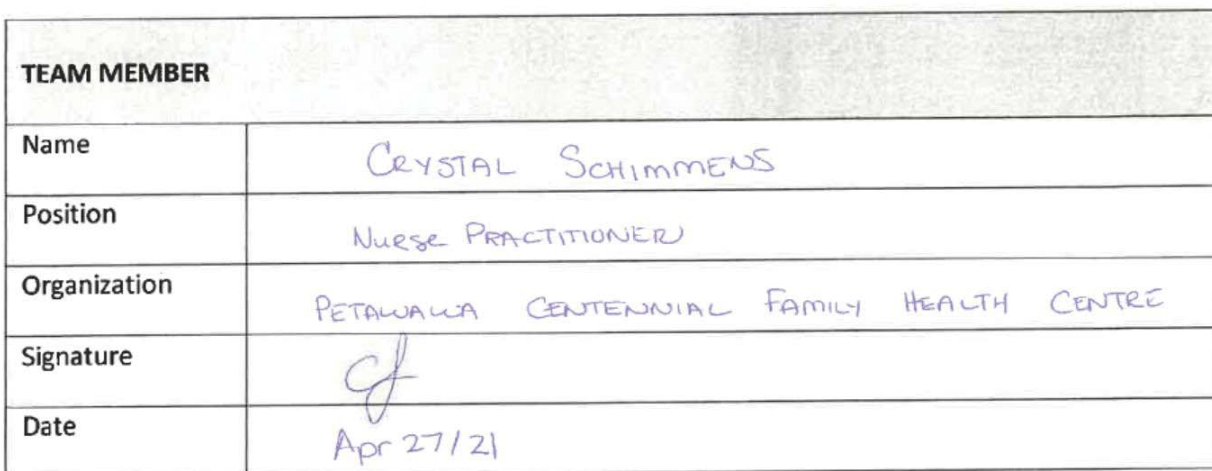 TEAM MEMBER
Name CRYSTAL SCHIMMENS
Position NURSE PRACTITIONER
Organization PETAWAWA CENTENNIAL FAMILY HEALTH CENTRE
Signature
Date Apr 27/21